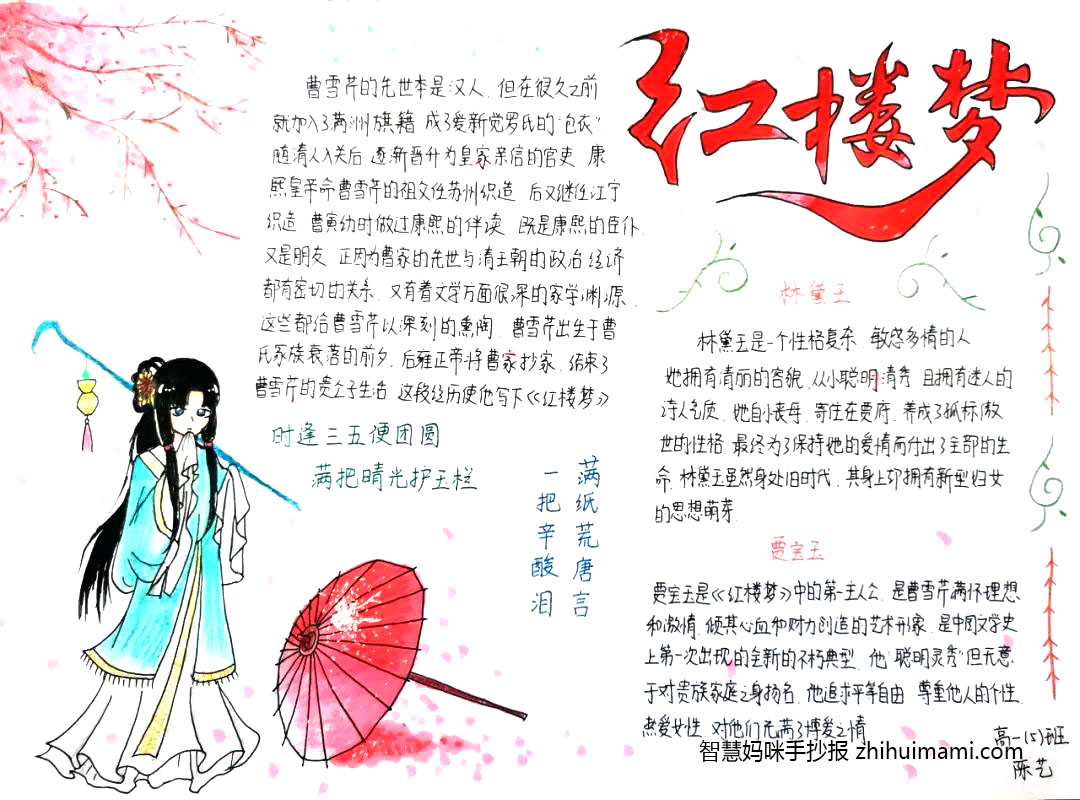 红楼梦
曹雪芹的先世本是汉人，但在很久之前
就加入了满洲旗籍 成了爱新觉罗氏的"包衣"
随清人入关后 逐渐晋升为皇家亲信的官吏 康
熙皇帝命曹雪芹的祖父任苏州织造 后又继任江宁
织造 曹寅幼时做过康熙的伴读 既是康熙的臣仆
又是朋友 正因为曹家的先世与清王朝的政治 经济
都有密切的关系，又有着文学方面很深的家学渊源，
这些都给曹雪芹以深刻的熏陶 曹雪芹出生于曹
氏家族衰落的前夕，后雍正帝将曹家抄家，结束了
曹雪芹的贵公子生活 这段经历使他写下《红楼梦》
时逢三五便团圆
满把晴光护玉栏
满纸荒唐言
一把辛酸泪
林黛玉
林黛玉是一个性格复杂，敏感多情的人
她拥有清丽的容貌，从小聪明清秀 且拥有迷人的
诗人气质 她自小丧母，寄住在贾府，养成了孤标傲
世的性格 最终为了保持她的爱情而付出了全部的生
命，林黛玉虽然身处旧时代，其身上却拥有新型妇女
的思想萌芽
贾宝玉
贾宝玉是《红楼梦》中的第一主人公，是曹雪芹满怀理想
和激情，倾其心血和财力创造的艺术形象，是中国文学史
上第一次出现的全新的不朽典型，他"聪明灵秀"但无意
于对贵族家庭之身扬名，他追求平等自由 尊重他人的个性
热爱女性，对他们充满了博爱之情
高一(5)班
陈艺
智慧妈咪手抄报 zhihuimami.com